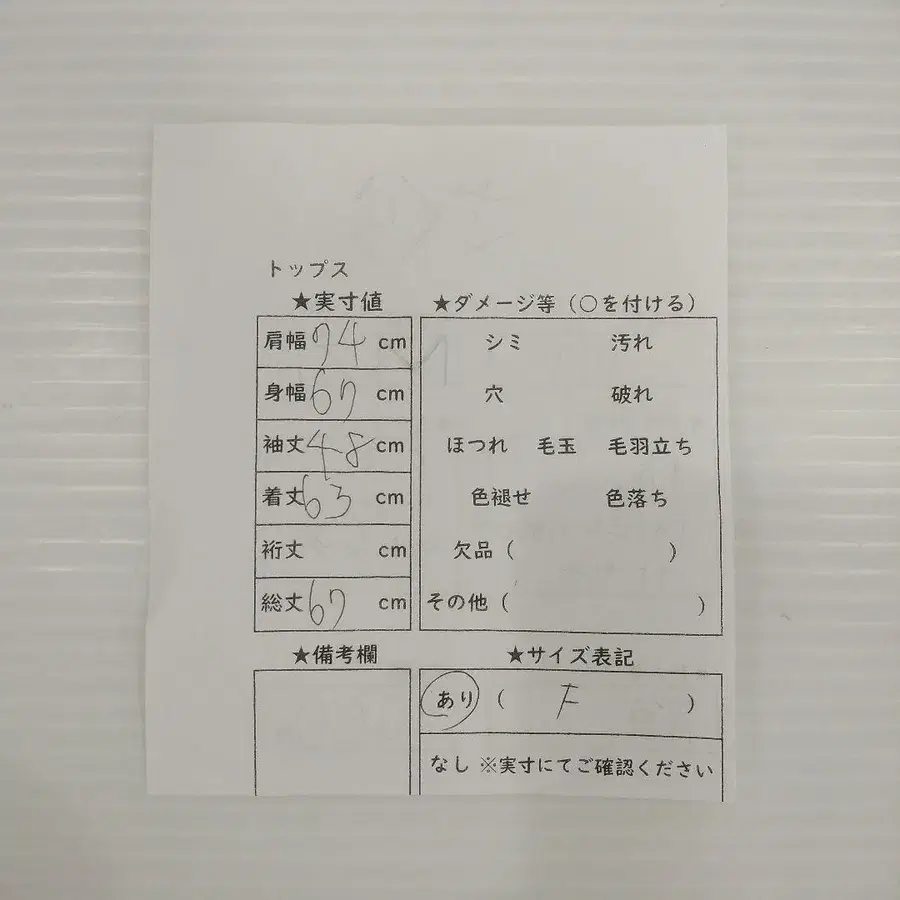 トップス
★実寸値
肩幅 74 cm
身幅 67 cm
袖丈 48 cm
着丈 63 cm
裄丈 cm
総丈 67 cm
★ダメージ等（○を付ける）
シミ 汚れ
穴 破れ
ほつれ 毛玉 毛羽立ち
色褪せ 色落ち
欠品（ ）
その他（ ）
★備考欄
★サイズ表記
あり（ F ）
なし ※実寸にてご確認ください